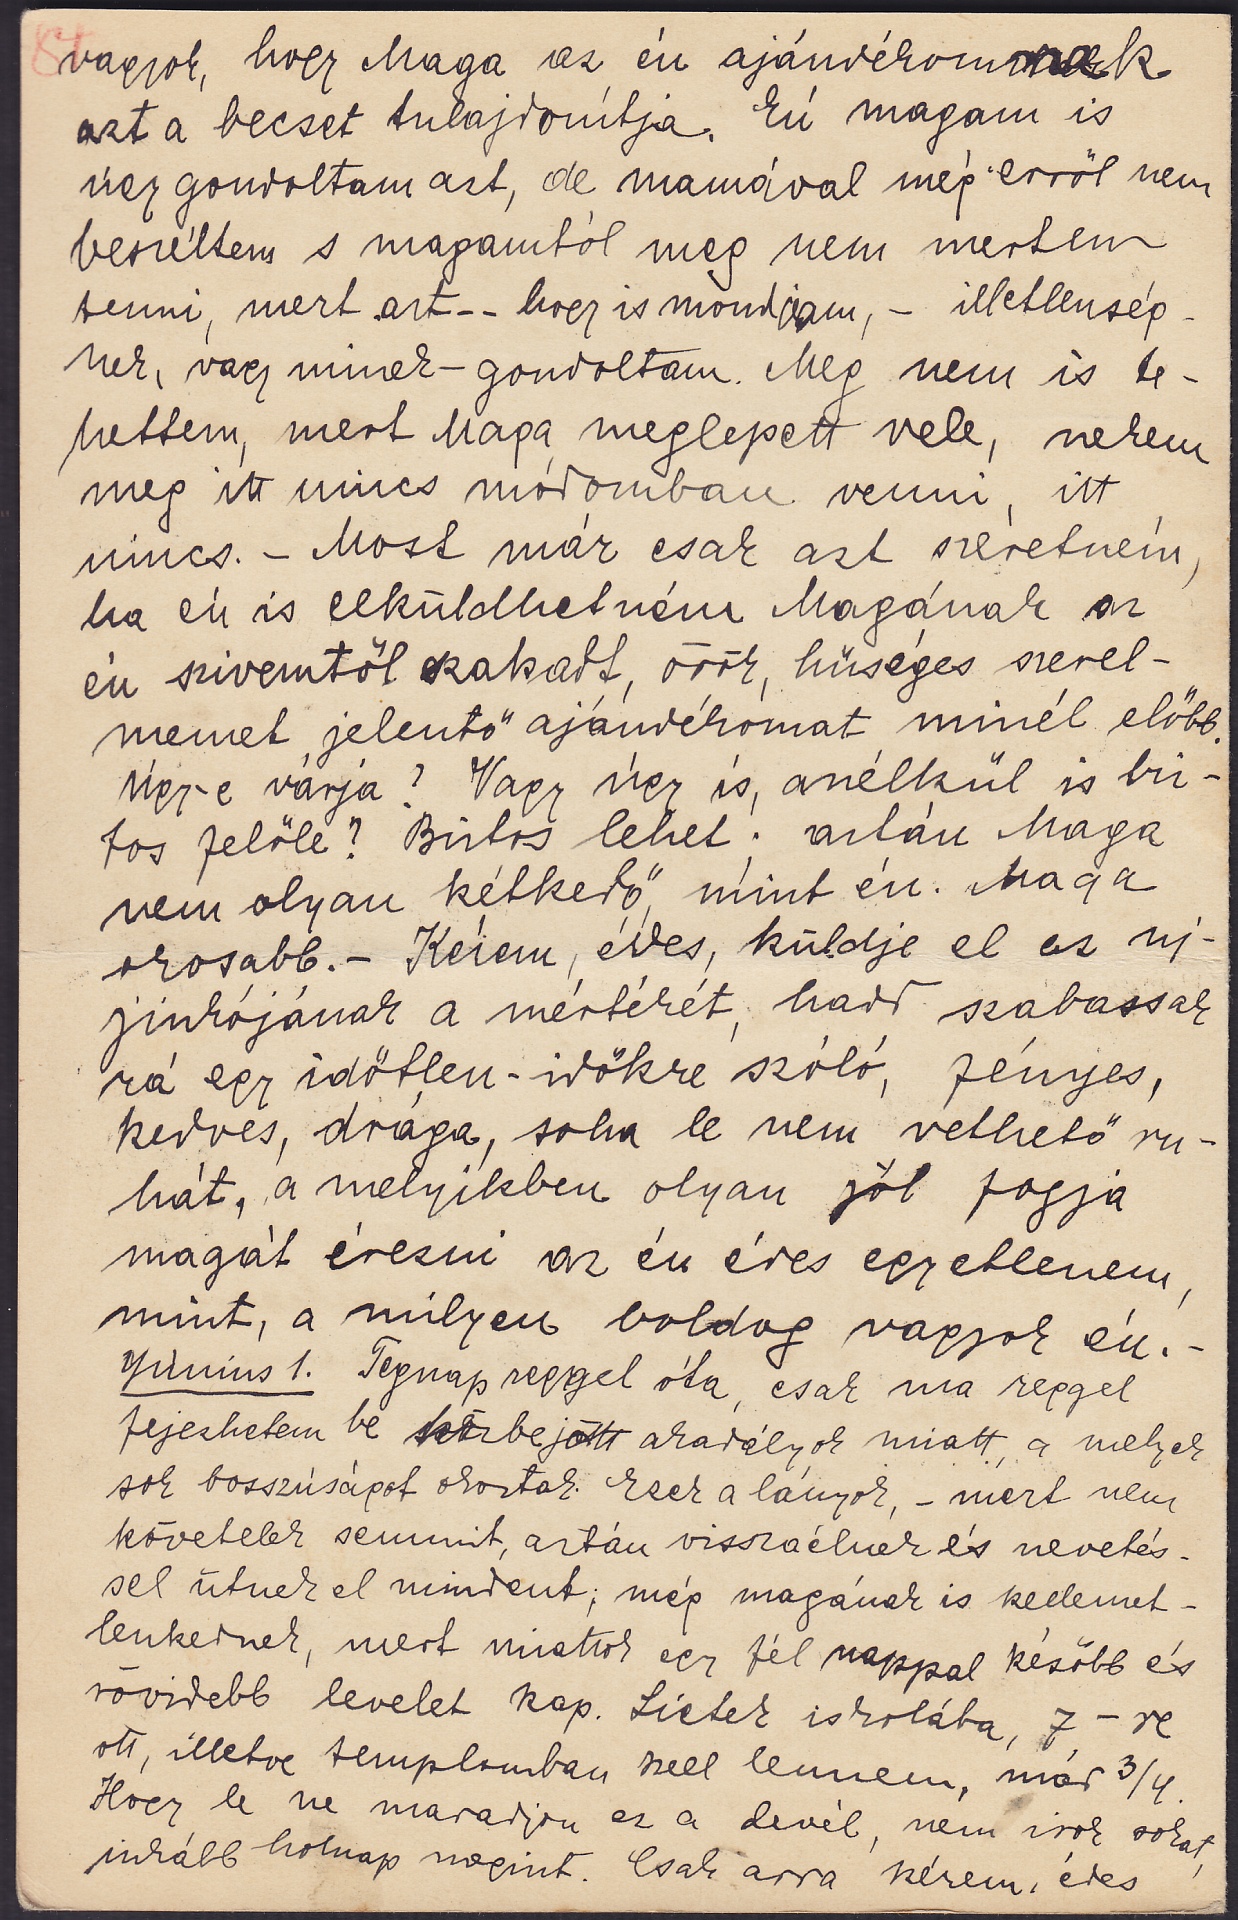 vagyok, hogy Maga az én ajándékomnak
azt a becset tulajdonítja. Én magam is
úgy gondoltam azt, de mamával még erről nem
beszéltem s magamtól meg nem mertem
tenni, mert azt -- hogy is mondjam, - illetlenség-
nek, vagy minek - gondoltam. Meg nem is te-
hettem, mert Maga meglepett vele, nekem
meg itt nincs módomban venni, itt
nincs. - Most már csak azt szeretném,
ha én is elküldhetném Magának az
én szivemtől szakadt, örök, hűséges szerel-
memet jelentő ajándékomat minél előbb.
Úgy-e várja? Vagy úgy is, anélkül is biz-
tos felőle? Biztos lehet; aztán Maga
nem olyan kétkedő, mint én. Maga
okosabb. - Kérem, édes, küldje el az uj-
jinkójának a mértékét, hadd szabassak
rá egy időtlen-időkre szóló, fényes,
kedves, drága, soha le nem vethető ru-
hát, a melyikben olyan jól fogja
magát érezni az én édes egyetlenem,
mint, a milyen boldog vagyok én. -
Június 1. Tegnap reggel óta, csak ma reggel
fejezhetem be közbejött akadályok miatt, a melyek
sok bosszúságot okoztak. Ezek a lányok, - mert nem
követelek semmit, aztán visszaélnek és nevetés-
sel ütnek el mindent; még magának is kellemet-
lenkednek, mert miattok egy fél nappal később és
rövidebb levelet kap. Sietek iskolába, 7-re
ott, illetve templomban kell lennem, már 3/4.
Hogy le ne maradjon ez a levél, nem irok sokat,
inkább holnap megint. Csak arra kérem, édes